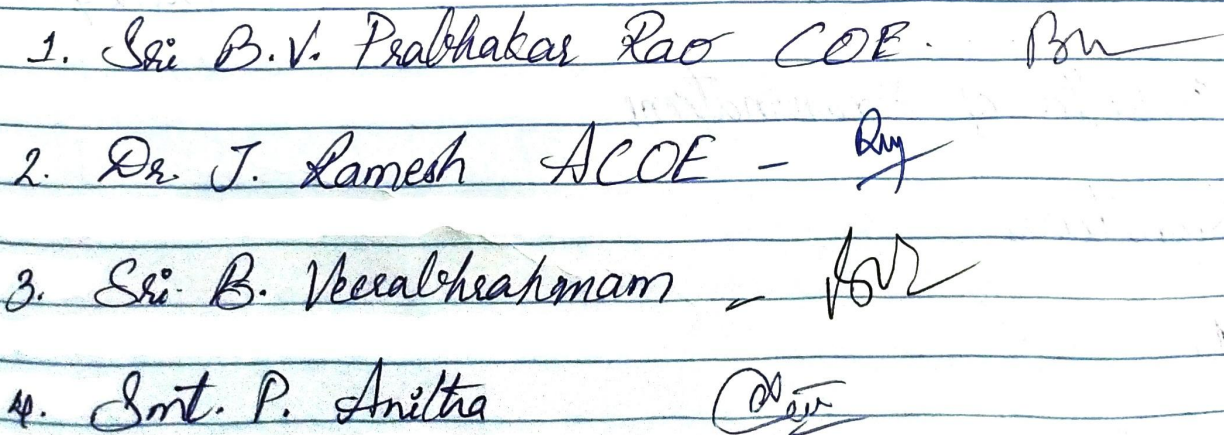 1. Sri B.V. Prabhakar Rao COE.
2. Dr. J. Ramesh ACOE -
3. Sri. B. Veerabhrahmam -
4. Smt. P. Anitha